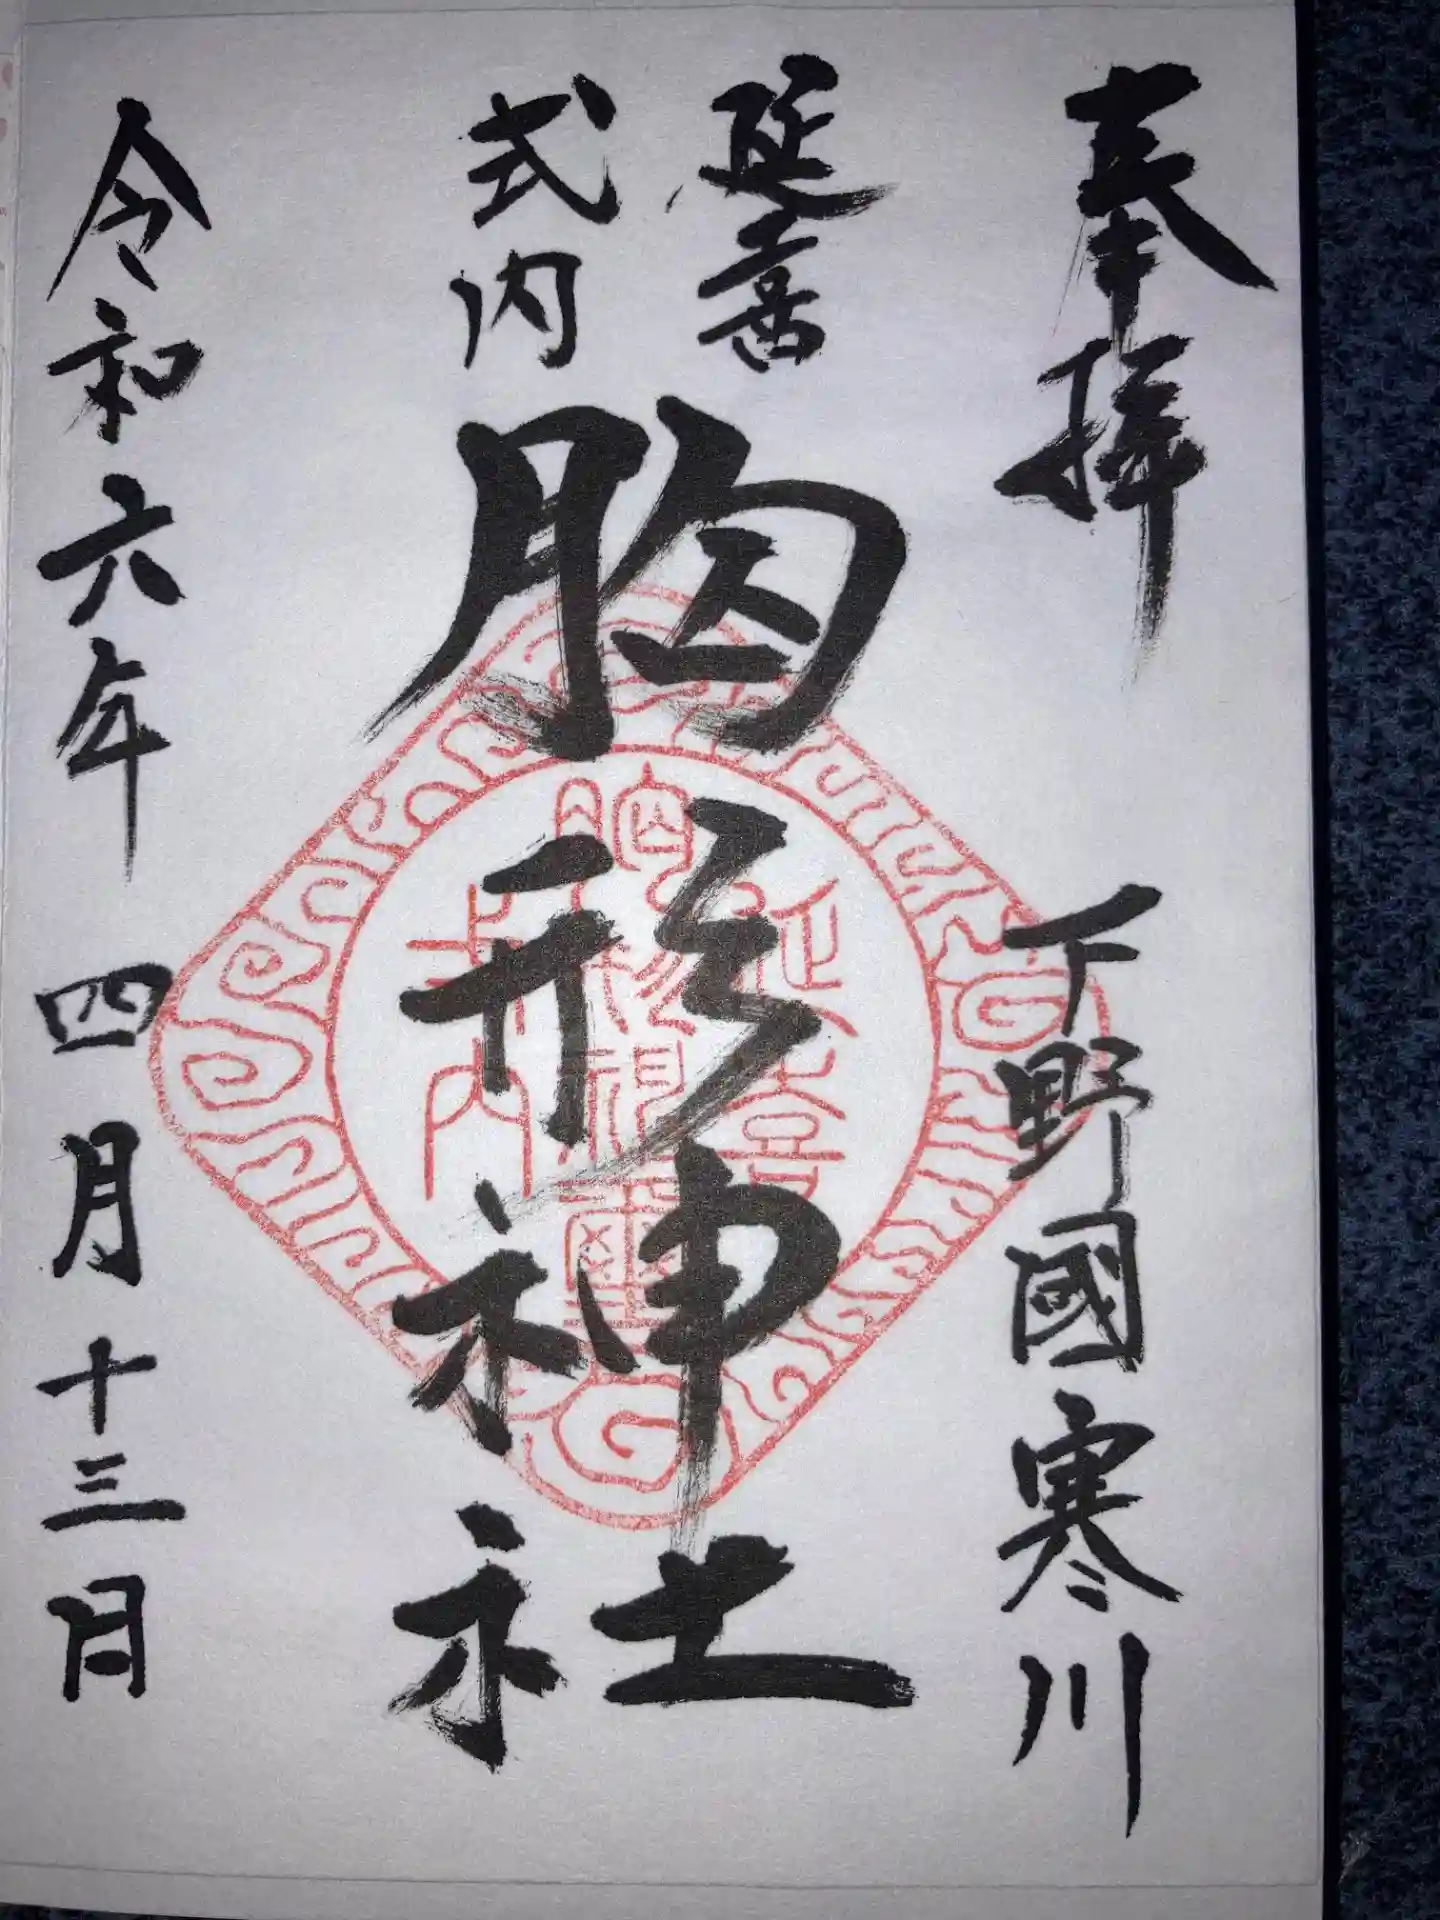 奉拝
下野國寒川
延喜
式内
胸形神社
令和六年四月十三日
延喜
式内